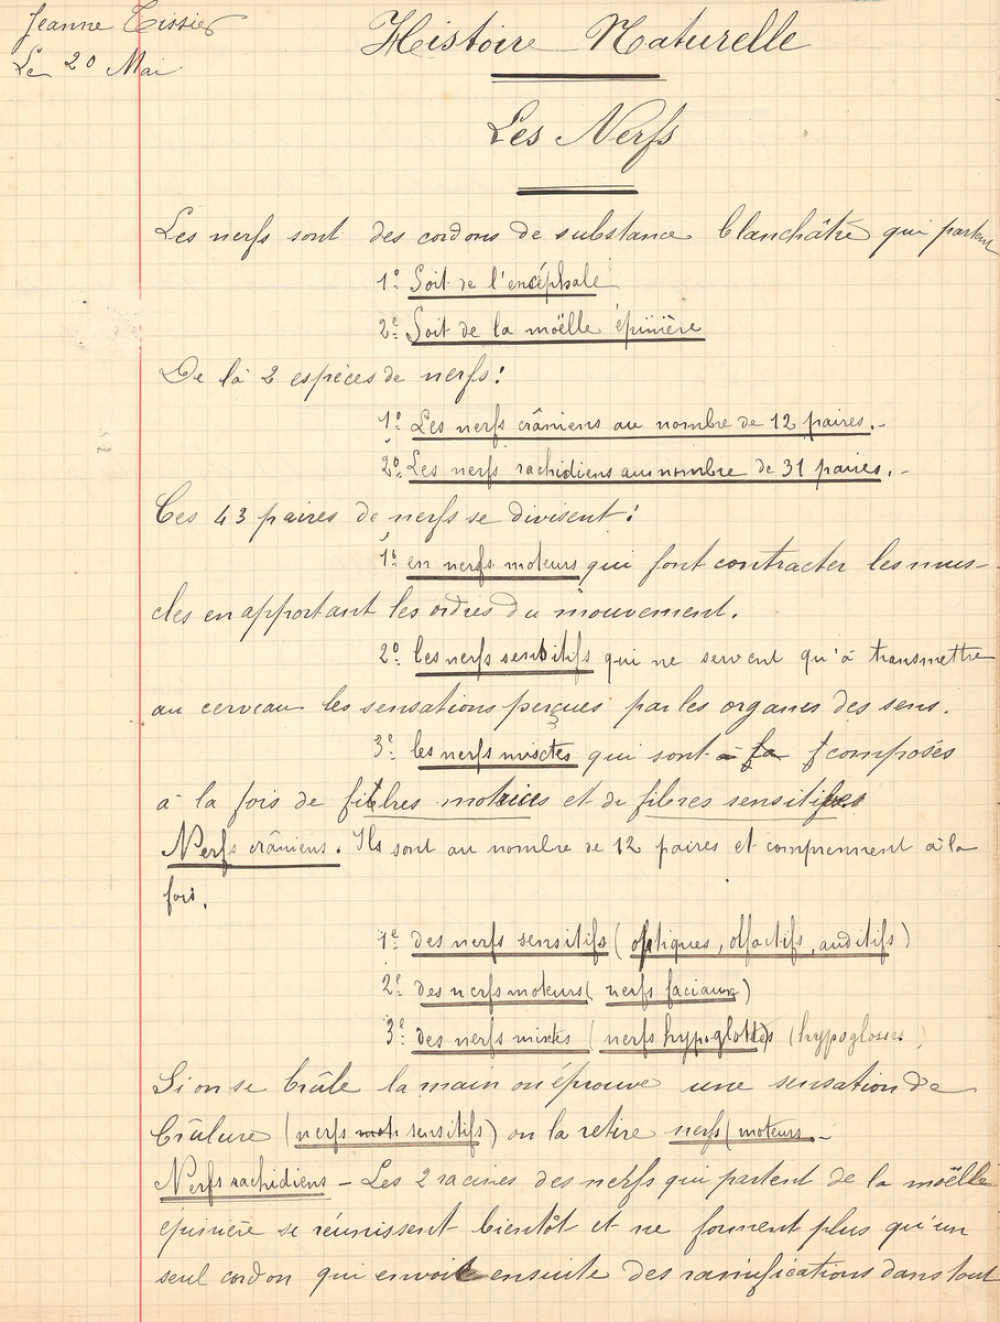 Jeanne Tissier
Le 20 Mai
Histoire Naturelle
Les Nerfs
Les nerfs sont des cordons de substance blanchâtre qui partent
1º Soit de l'encéphale
2º Soit de la moëlle épinière
De là 2 espèces de nerfs:
1º Les nerfs crâniens au nombre de 12 paires.-
2º Les nerfs rachidiens au nombre de 31 paires.-
Ces 43 paires de nerfs se divisent:
1º en nerfs moteurs qui font contracter les mus-
cles en apportant les ordres du mouvement.
2º les nerfs sensitifs qui ne servent qu'à transmettre
au cerveau les sensations perçues par les organes des sens.
3º les nerfs mixtes qui sont à fa composés
à la fois de fibres motrices et de fibres sensitives
Nerfs crâniens. Ils sont au nombre de 12 paires et comprennent à la
fois.
1º des nerfs sensitifs (optiques, olfactifs, auditifs)
2º des nerfs moteurs (nerfs faciaux)
3º des nerfs mixtes (nerfs hypoglottes) (hypoglosses)
Si on se brûle la main on éprouve une sensation de
brûlure (nerfs mot sensitifs) on la retire nerfs (moteurs.-
Nerfs rachidiens - Les 2 racines des nerfs qui partent de la moëlle
épinière se réunissent bientôt et ne forment plus qu'un
seul cordon qui envoie ensuite des ramifications dans tout